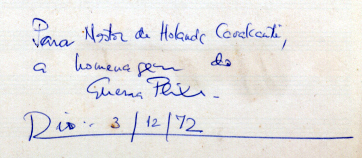 Para Nestor de Holanda Cavalcanti,
a homenagem do
Guerra Peixe.
Rio.. 3/12/72